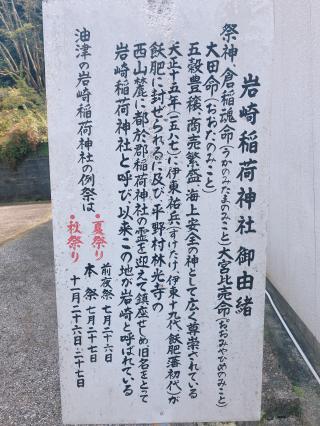 岩崎稲荷神社 御由緒
祭神、倉稲魂命(うかのみたまのみこと)大宮比売命(おおみやひめのみこと)
大田命(おおたのみこと)
五穀豊穣、商売繁盛、海上安全の神として広く尊崇されている
大正十五年(一五八七)に伊東祐兵(すけたけ、伊東十九代、飫肥藩初代)が
飫肥に封ぜられるに及び、平野村林光寺の
西山麓に都於郡稲荷神社の霊を迎えて鎮座せしめ旧名をとって
岩崎稲荷神社と呼び以来この地が岩崎と呼ばれている
油津の岩崎稲荷神社の例祭は
・夏祭り 前夜祭 七月二十六日
本祭 七月二十七日
・秋祭り 十一月二十六日・二十七日